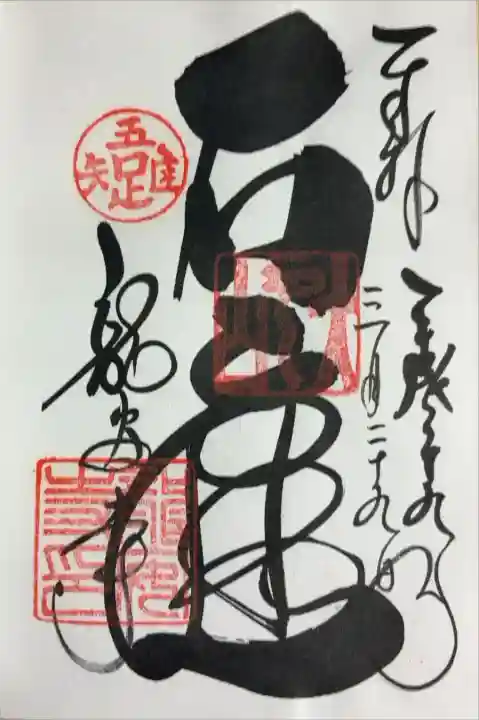 奉拝
平成二十九年
三月二十九日
石庭
吾唯足知
龍安寺